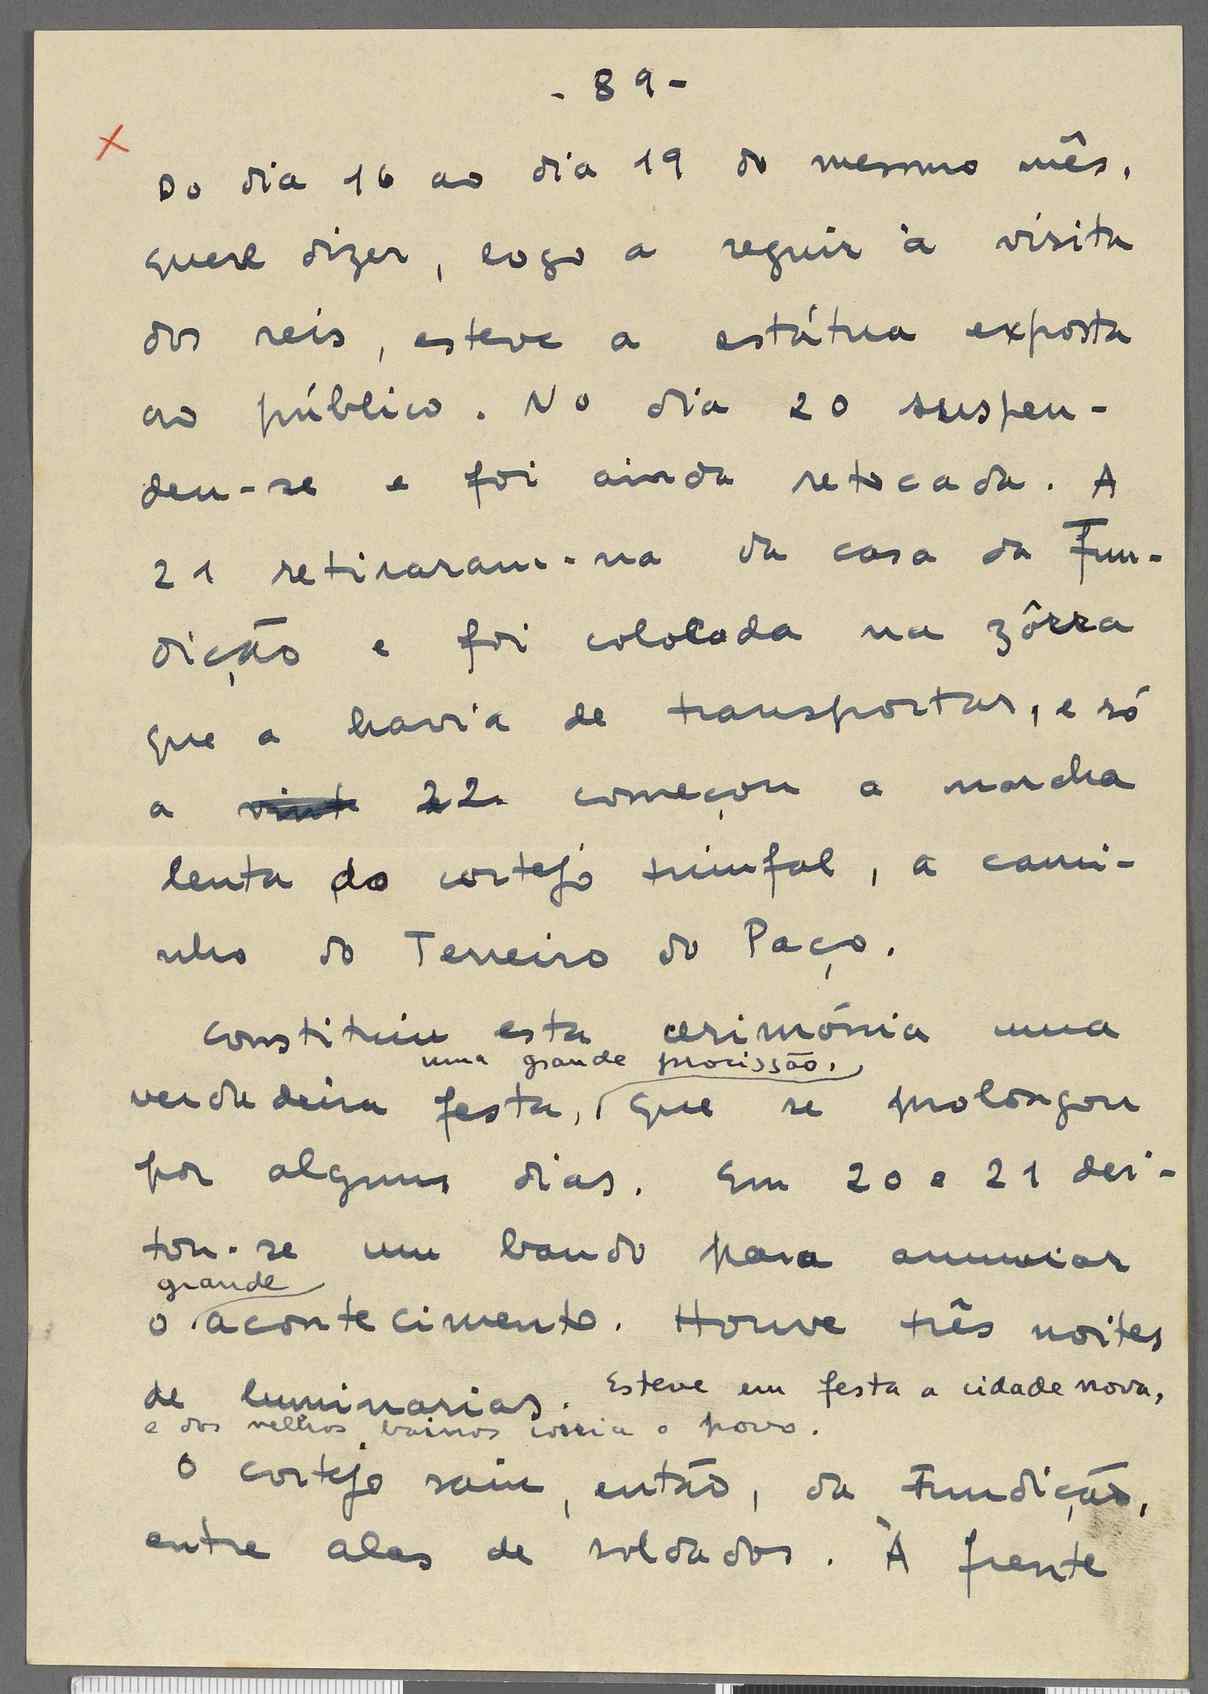 - 89 -
X
Do dia 16 ao dia 19 do mesmo mês,
quere dizer, logo a seguir à visita
dos reis, esteve a estátua exposta
ao público. No dia 20 suspen-
deu-se e foi ainda retocada. A
21 retiraram-na da casa da Fun-
dição e foi colocada na zôrra
que a havia de transportar, e só
a vinte 22 começou a marcha
lenta do cortejo triunfal, a cami-
nho do Terreiro do Paço.
Constituiu esta cerimónia uma
uma grande procissão,
verdadeira festa, que se prolongou
por alguns dias. Em 20 e 21 dei-
tou-se um bando para anunciar
grande
o acontecimento. Houve três noites
de luminarias. Esteve em festa a cidade nova,
e dos velhos bairros corria o povo.
O cortejo saiu, então, da Fundição,
entre alas de soldados. À frente